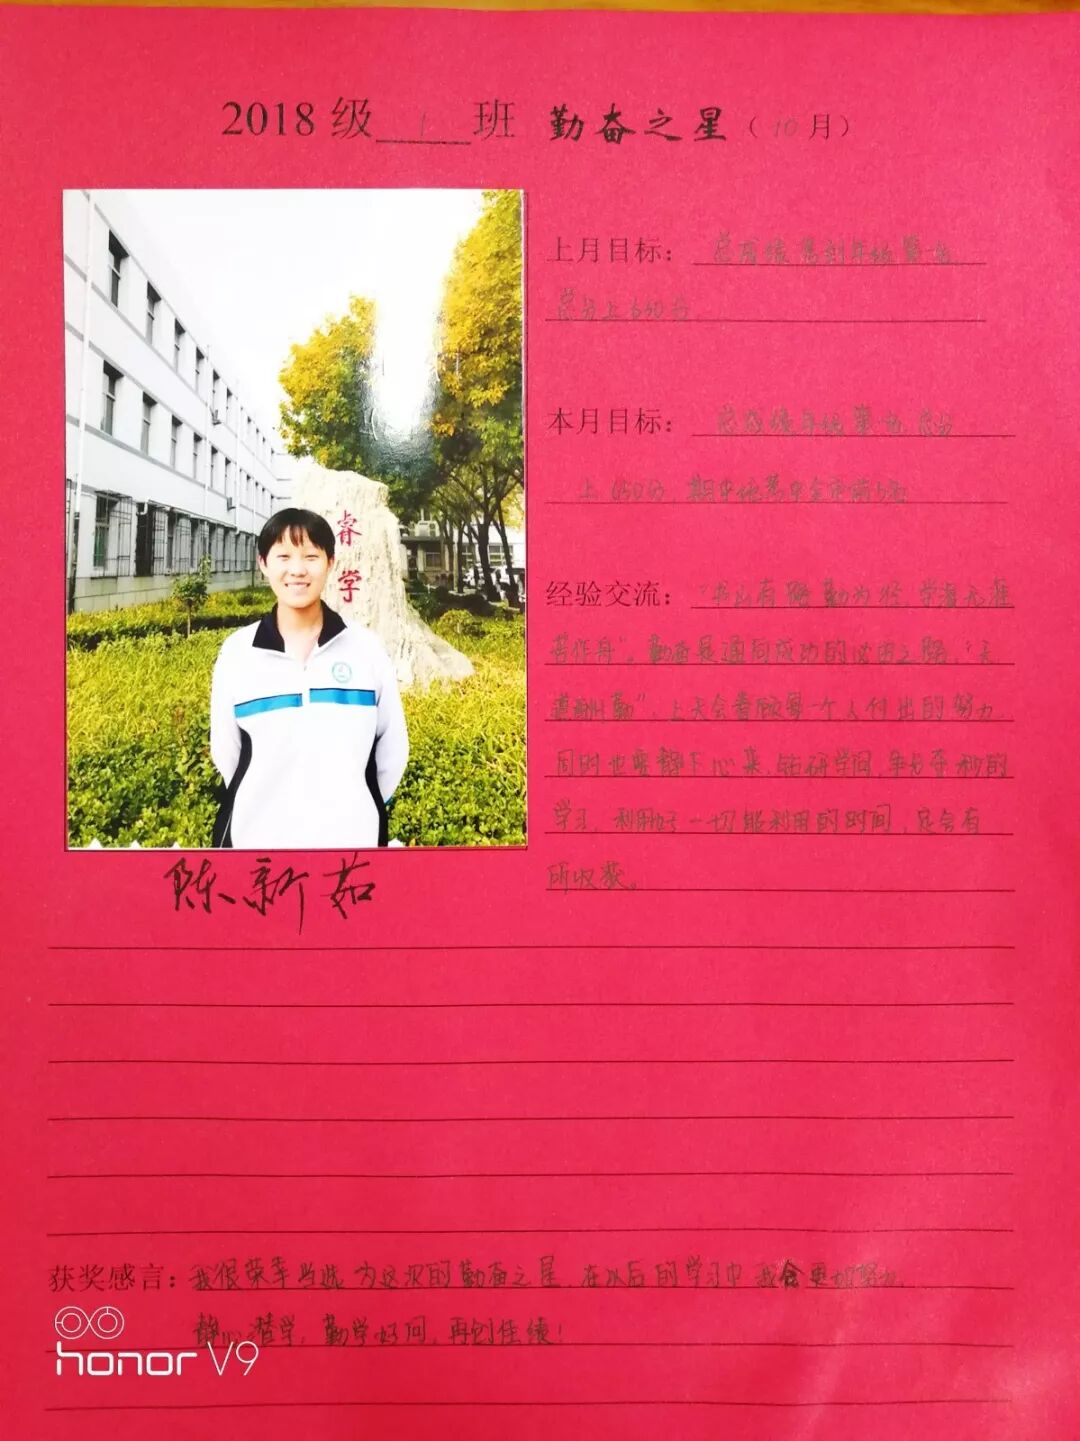 2018 级 1 班 勤奋之星（10月）
上月目标：总成绩考到年级第一名，
总分上630分。
睿学
本月目标：总成绩年级第一名，总分
上650分，期中统考中全市前5名
经验交流："书山有路勤为径，学海无涯
苦作舟"。勤奋是通向成功的必由之路，"天
道酬勤"，上天会眷顾每一个人付出的努力，
同时也要静下心来，钻研学问，争分夺秒的
学习，利用好一切能利用的时间，定会有
所收获。
陈新茹
获奖感言：我很荣幸当选为这次的勤奋之星，在以后的学习中我会更加努力，
静心潜学，勤学好问，再创佳绩！
honor V9